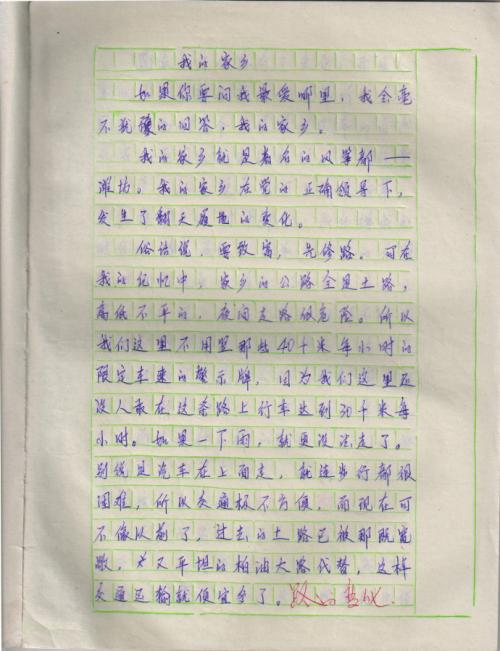 我的家乡
如果你要问我最爱哪里,我会毫
不犹豫的回答,我的家乡。
我的家乡就是着名的风筝都——
潍坊。我的家乡在党的正确领导下,
发生了翻天履地的变化。
俗话说,要致富,先修路。可在
我的记忆中,家乡的公路全是土路,
高低不平的,夜间走路很危险。所以
我们这里不用竖那些40千米每小时的
限定车速的警示牌,因为我们这里还
没人敢在这条路上行车达到30千米每
小时。如果一下雨,就更没法走了。
别说是汽车在上面走,就连步行都很
困难,所以交通极不方便,而现在可
不像以前了,过去的土路已被那既宽
敞,又平坦的柏油大路代替,这样
交通运输就便宜多了。路的变化